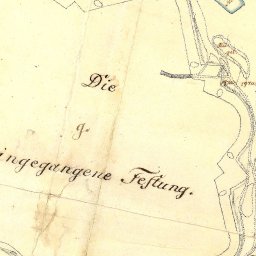 Die
g.
ingegangene Festung.